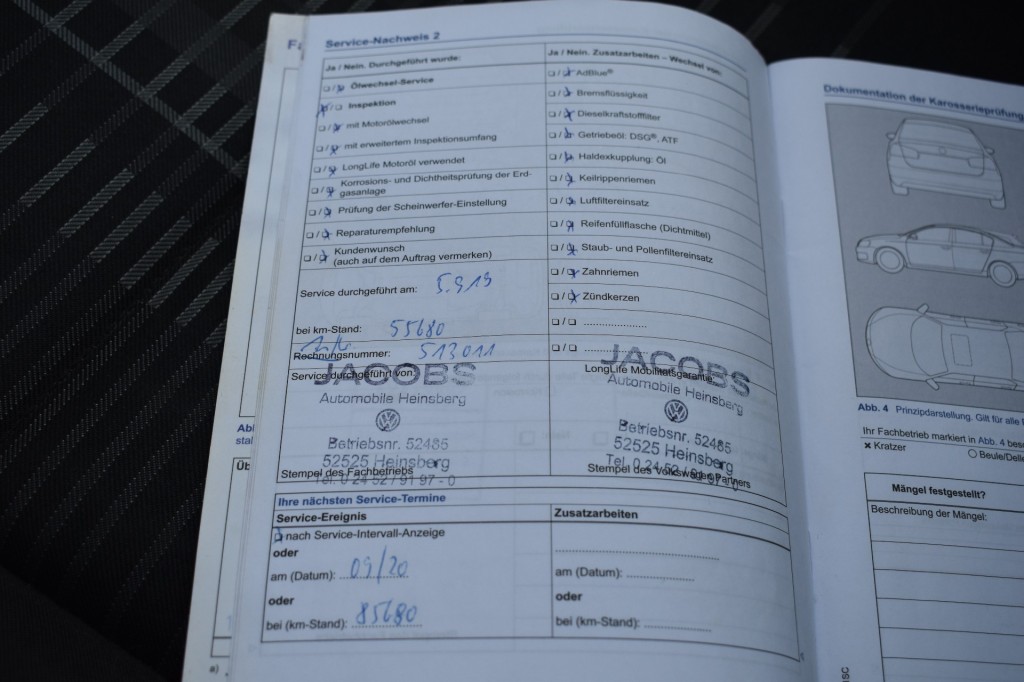 Service-Nachweis 2
Ja / Nein. Durchgeführt wurde:
Ölwechsel-Service
Inspektion
mit Motorölwechsel
mit erweitertem Inspektionsumfang
LongLife Motoröl verwendet
Korrosions- und Dichtheitsprüfung der Erd-
gasanlage
Prüfung der Scheinwerfer-Einstellung
Reparaturempfehlung
Kundenwunsch
(auch auf dem Auftrag vermerken)
Service durchgeführt am: 5.9.19
bei km-Stand: 55680
Rechnungsnummer: 513011
Service durchgeführt von:
JACOBS
Automobile Heinsberg
Betriebsnr. 52485
52525 Heinsberg
Stempel des Fachbetriebs
Tel. 0 24 52 / 91 97 - 0
Ja / Nein. Zusatzarbeiten – Wechsel von:
AdBlue®
Bremsflüssigkeit
Dieselkraftstofffilter
Getriebeöl: DSG®, ATF
Haldexkupplung: Öl
Keilrippenriemen
Luftfiltereinsatz
Reifenfüllflasche (Dichtmittel)
Staub- und Pollenfiltereinsatz
Zahnriemen
Zündkerzen
JACOBS
LongLife Mobilitätsgarantie
Automobile Heinsberg
Betriebsnr. 52485
52525 Heinsberg
Tel. 0 24 52 / 91 97 - 0
Stempel des Volkswagen Partners
Ihre nächsten Service-Termine
Service-Ereignis
nach Service-Intervall-Anzeige
oder
am (Datum): 09/20
oder
bei (km-Stand): 85680
Zusatzarbeiten
am (Datum):
oder
bei (km-Stand):
Dokumentation der Karosserieprüfung
Abb. 4 Prinzipdarstellung. Gilt für alle
Ihr Fachbetrieb markiert in Abb. 4
x Kratzer
Beule/Delle
Mängel festgestellt?
Beschreibung der Mängel:
a)